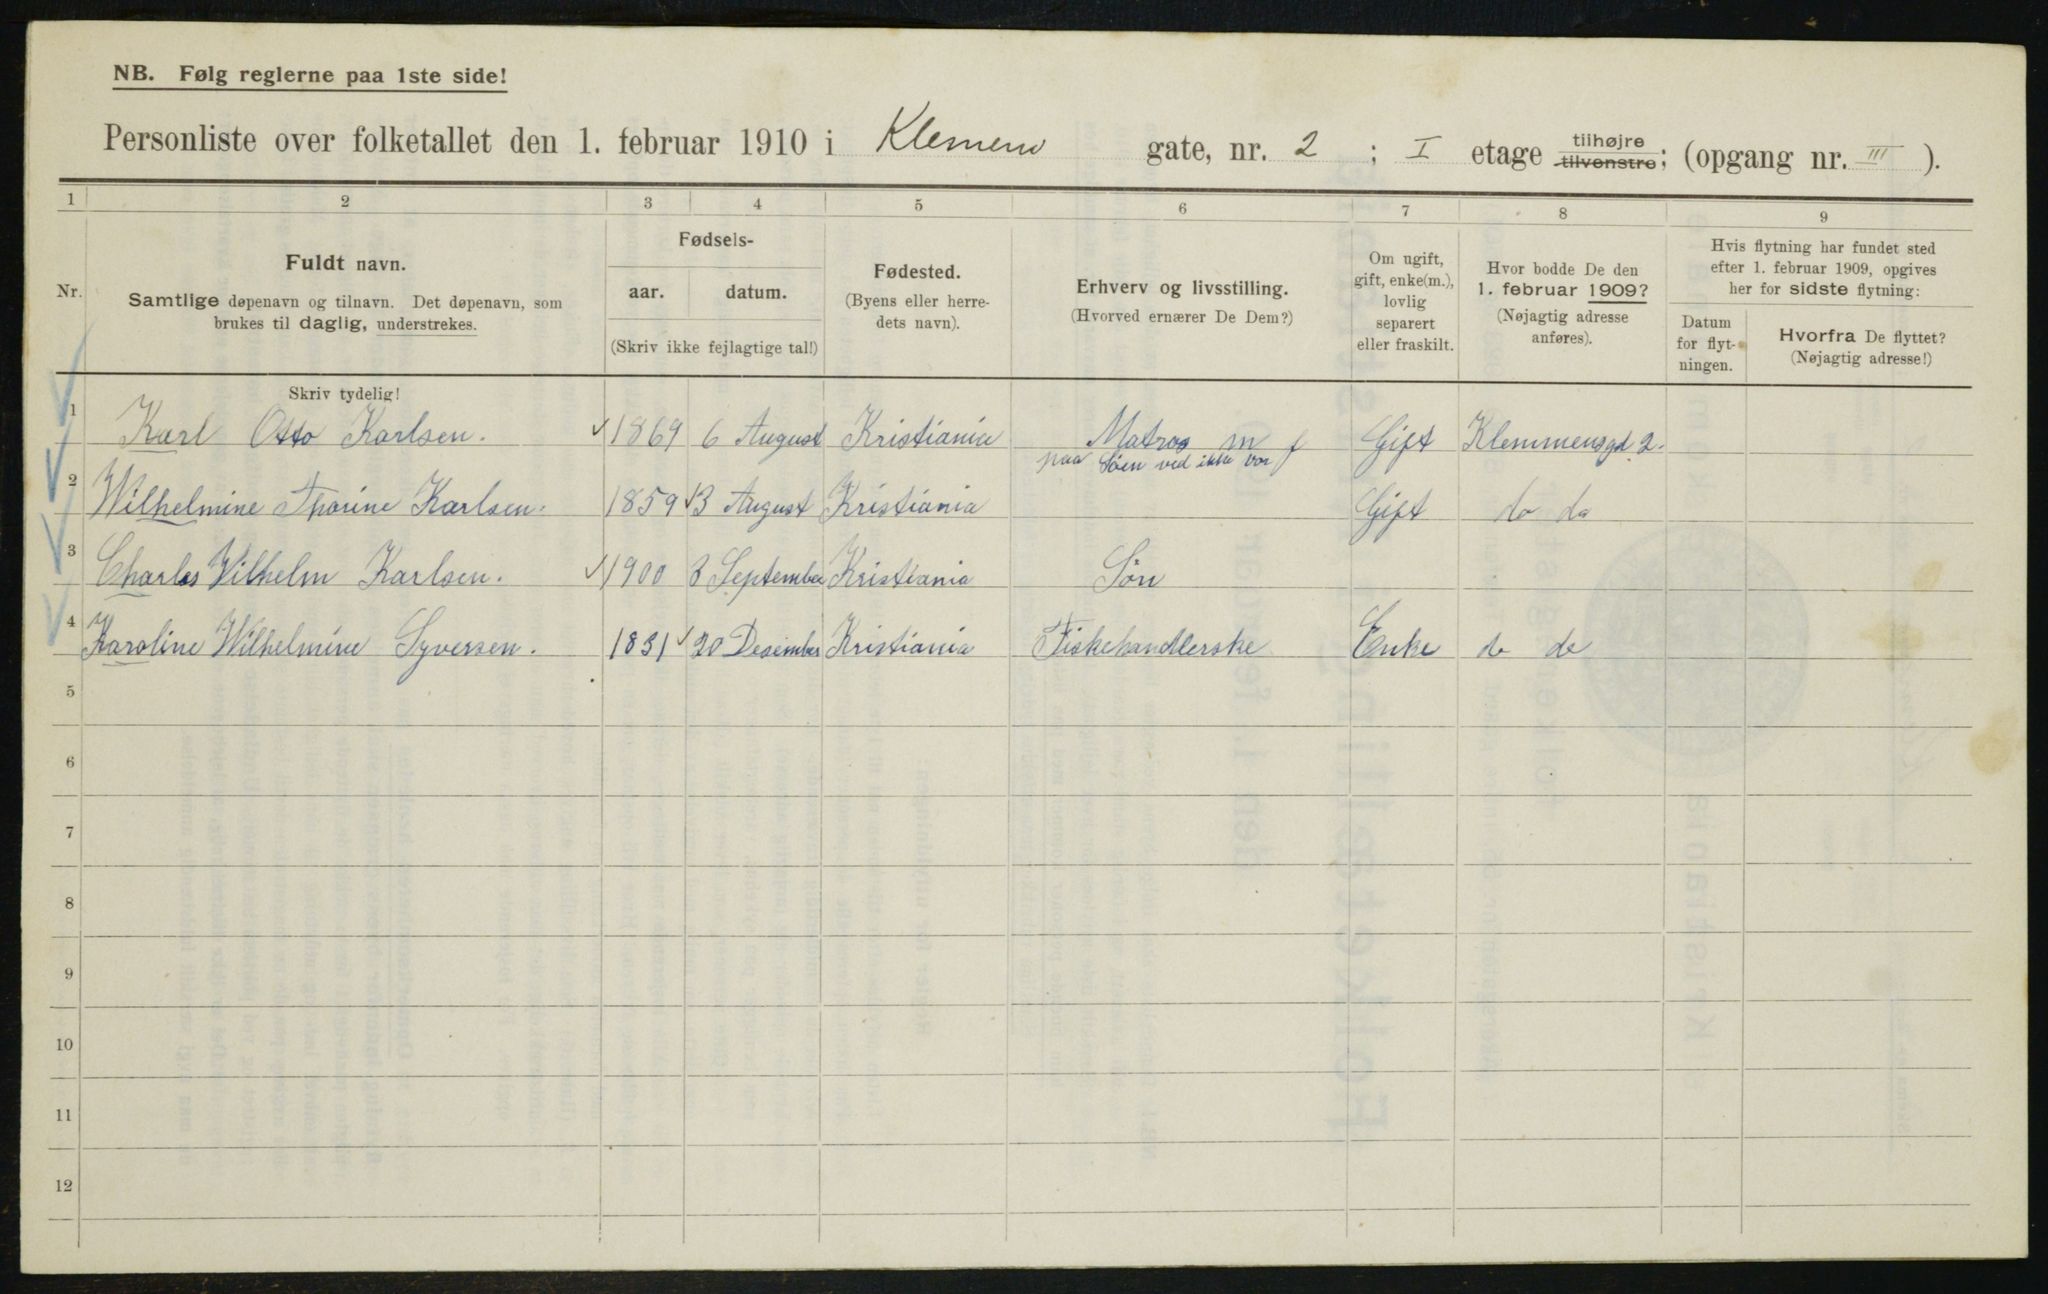 NB. Følg reglerne paa 1ste side!
Personliste over folketallet den 1. februar 1910 i Klemens gate, nr. 2 ; I etage tilhøjre tilvenstre; (opgang nr. III ).
1 2 3 4 5 6 7 8 9
Nr. Fuldt navn. Samtlige døpenavn og tilnavn. Det døpenavn, som
brukes til daglig, understrekes.
Fødsels-
aar. datum.
(Skriv ikke fejlagtige tal!)
Fødested.
(Byens eller herre-
dets navn).
Erhverv og livsstilling.
(Hvorved ernærer De Dem?)
Om ugift,
gift, enke(m.),
lovlig
separert
eller fraskilt.
Hvor bodde De den
1. februar 1909?
(Nøjagtig adresse
anføres).
Hvis flytning har fundet sted
efter 1. februar 1909, opgives
her for sidste flytning:
Datum
for flyt-
ningen.
Hvorfra De flyttet?
(Nøjagtig adresse!)
Skriv tydelig!
1 Karl Otto Karlsen. 1869 6 August Kristiania Matros m f Gift Klemmensgd 2.
paa Søen ved ikke vor
2 Wilhelmine Thorine Karlsen. 1859 13 August Kristiania Gift do do
3 Charles Wilhelm Karlsen. 1900 3 September Kristiania Søn
4 Karoline Wilhelmine Syversen. 1831 20 Desember Kristiania Fiskehandlerske Enke do do
5
6
7
8
9
10
11
12